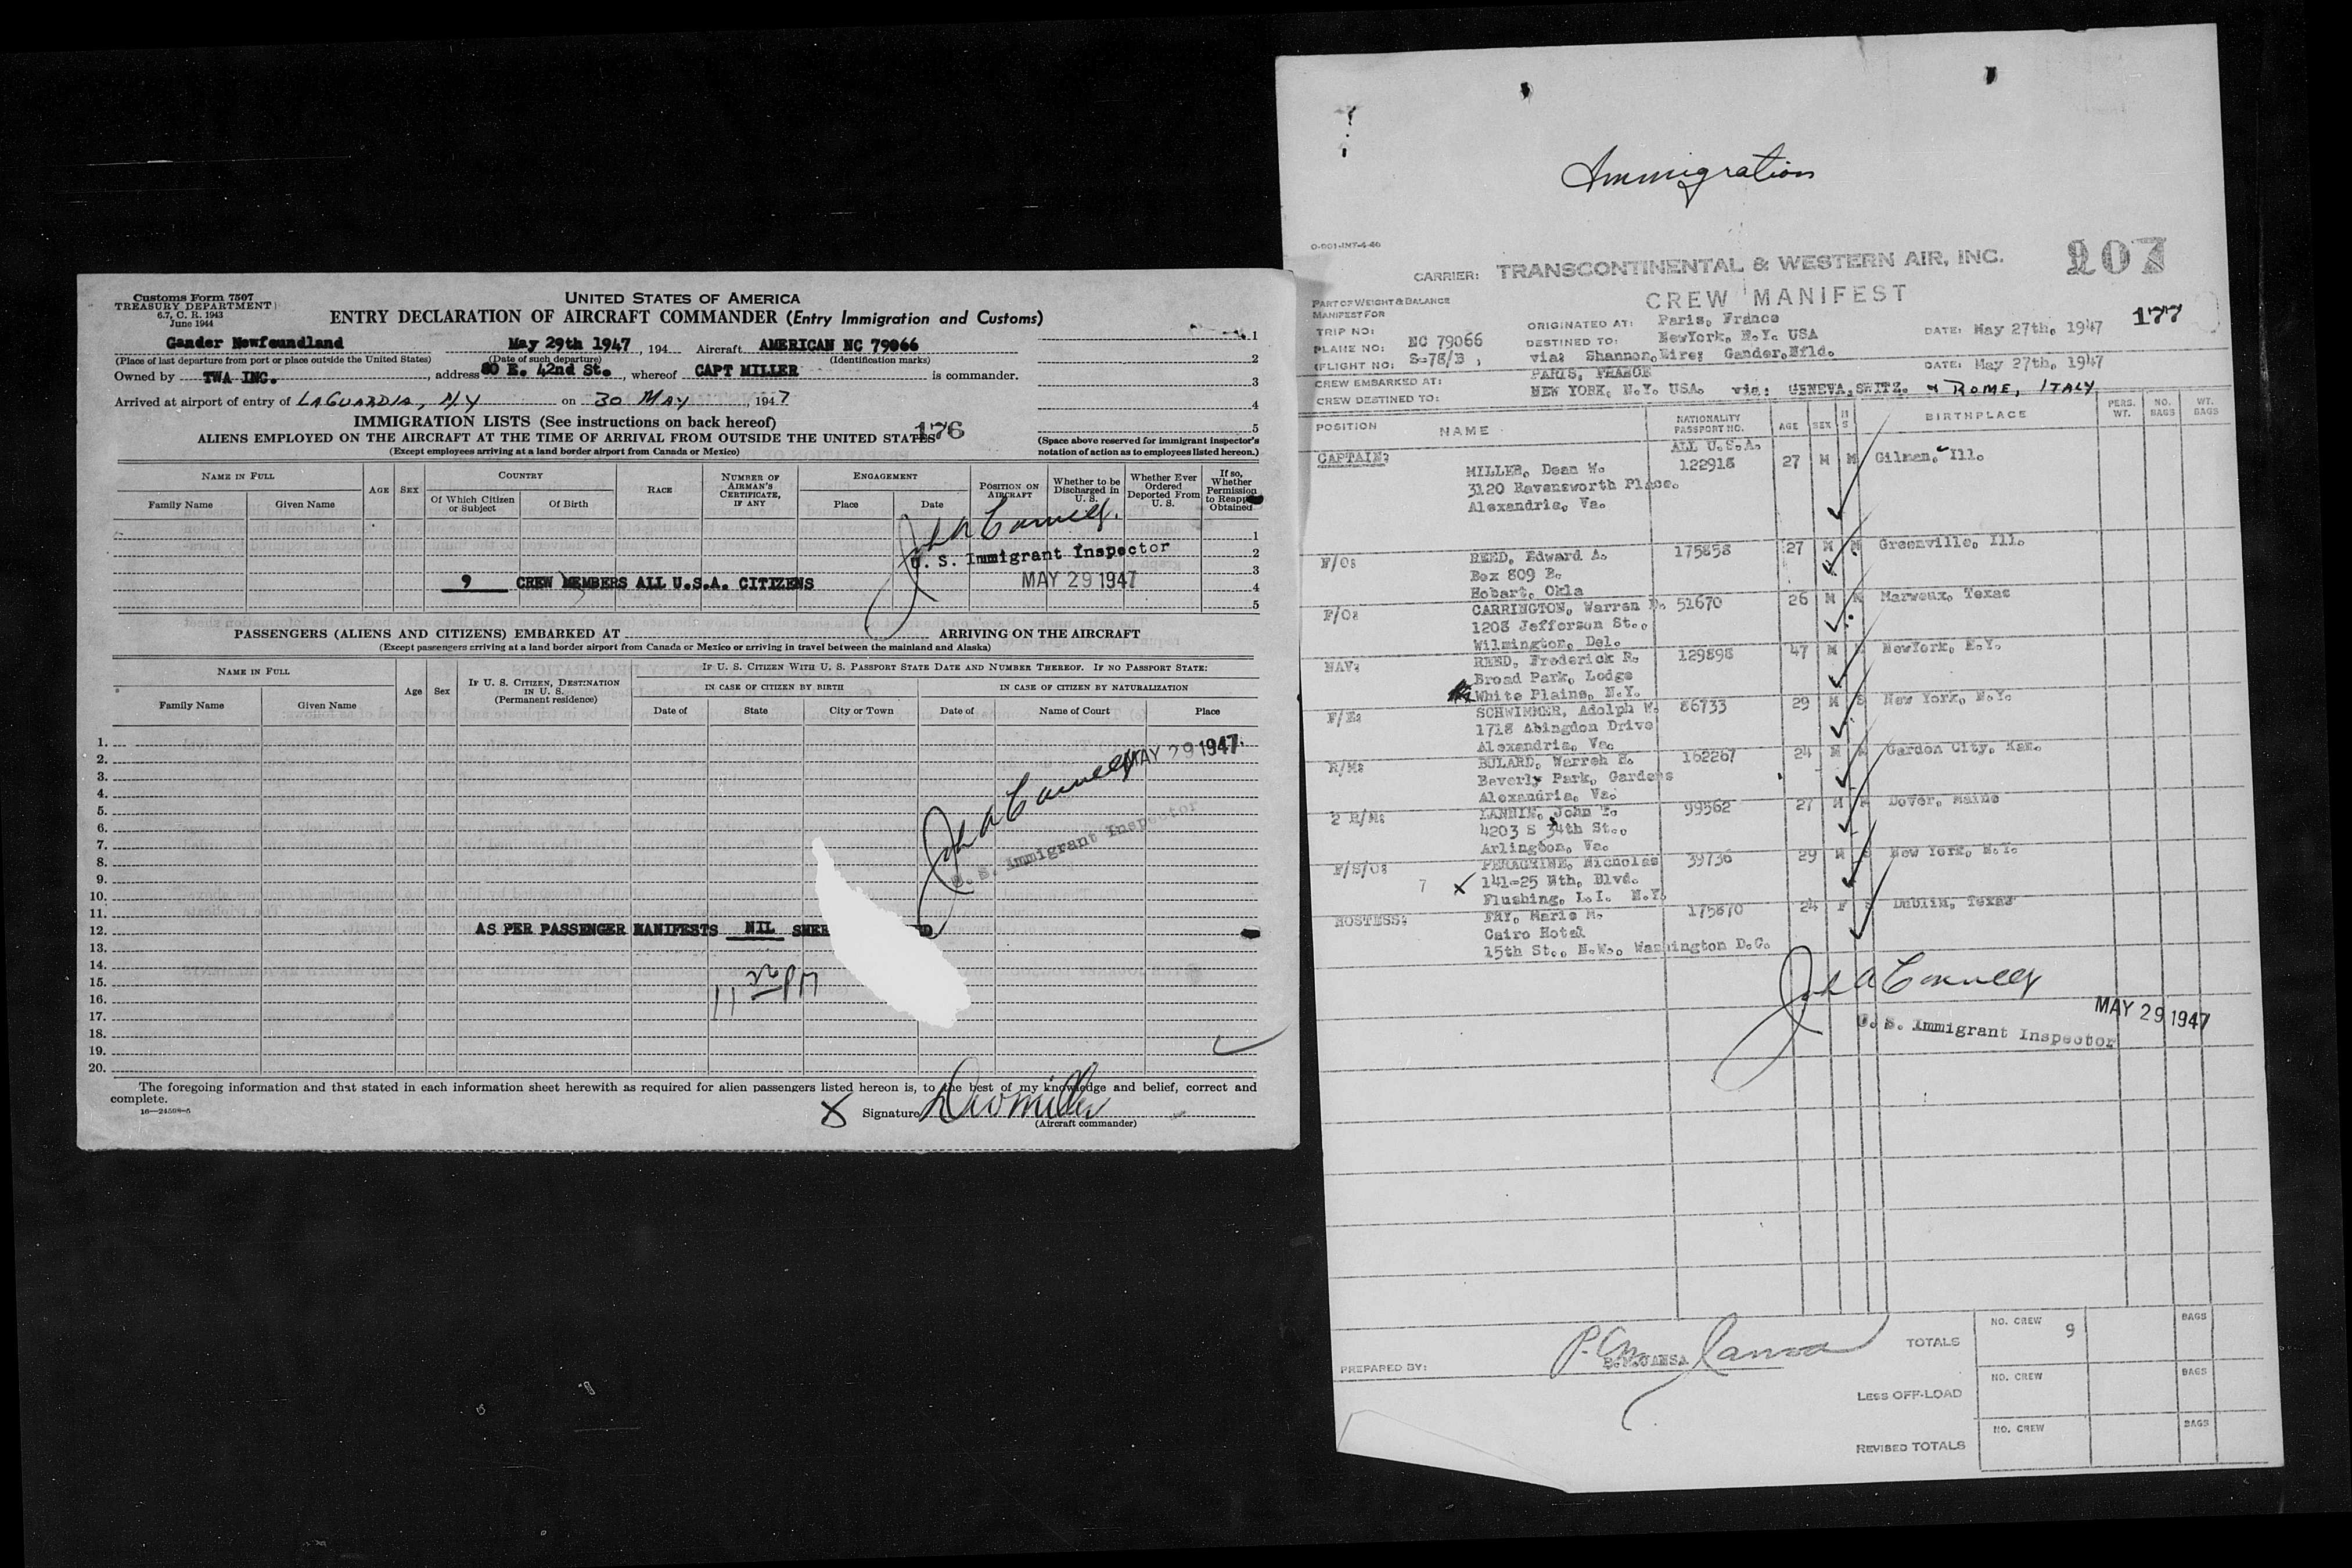 Customs Form 7507
TREASURY DEPARTMENT
6.7, C. R. 1943
June 1944
UNITED STATES OF AMERICA
ENTRY DECLARATION OF AIRCRAFT COMMANDER (Entry Immigration and Customs)
Gander Newfoundland May 29th 1947, 194 Aircraft AMERICAN NC 79066
(Place of last departure from port or place outside the United States) (Date of such departure) (Identification marks)
Owned by TWA INC., address 80 E. 42nd St., whereof CAPT MILLER is commander.
Arrived at airport of entry of LAGUARDIA, NY on 30 MAY, 1947
IMMIGRATION LISTS (See instructions on back hereof)
176
ALIENS EMPLOYED ON THE AIRCRAFT AT THE TIME OF ARRIVAL FROM OUTSIDE THE UNITED STATES
(Except employees arriving at a land border airport from Canada or Mexico)
1
2
3
4
5
(Space above reserved for immigrant inspector's
notation of action as to employees listed hereon.)
NAME IN FULL AGE SEX COUNTRY RACE NUMBER OF AIRMAN'S CERTIFICATE, IF ANY ENGAGEMENT POSITION ON AIRCRAFT Whether to be Discharged in U. S. Whether Ever Ordered Deported From U. S. If so, Whether Permission to Reapply Obtained
Family Name Given Name Of Which Citizen or Subject Of Birth Place Date
John A Connelly
1
U. S. Immigrant Inspector 2
3
9 CREW MEMBERS ALL U.S.A. CITIZENS MAY 29 1947 4
5
PASSENGERS (ALIENS AND CITIZENS) EMBARKED AT ARRIVING ON THE AIRCRAFT
(Except passengers arriving at a land border airport from Canada or Mexico or arriving in travel between the mainland and Alaska)
NAME IN FULL Age Sex IF U. S. CITIZEN, DESTINATION IN U. S. (Permanent residence) IF U. S. CITIZEN WITH U. S. PASSPORT STATE DATE AND NUMBER THEREOF. IF NO PASSPORT STATE:
IN CASE OF CITIZEN BY BIRTH IN CASE OF CITIZEN BY NATURALIZATION
Family Name Given Name Date of State City or Town Date of Name of Court Place
1. MAY 29 1947
2.
3.
4.
5. John A Connelly
6.
7. U. S. Immigrant Inspector
8.
9.
10.
11.
12. AS PER PASSENGER MANIFESTS NIL
13.
14.
15.
16.
17.
18.
19.
20.
The foregoing information and that stated in each information sheet herewith as required for alien passengers listed hereon is, to the best of my knowledge and belief, correct and
complete.
X Signature DW Miller
(Aircraft commander)
Immigration
O-001-INT-4-46
CARRIER: TRANSCONTINENTAL & WESTERN AIR, INC. 207
PART OF WEIGHT & BALANCE
MANIFEST FOR
CREW MANIFEST
177
TRIP NO: ORIGINATED AT: Paris, France DATE: May 27th, 1947
PLANE NO: NC 79066 DESTINED TO: NewYork, N.Y. USA
FLIGHT NO: S-78/B, via: Shannon, Eire; Gander, Nfld.
CREW EMBARKED AT: PARIS, FRANCE DATE: May 27th, 1947
CREW DESTINED TO: NEW YORK, N.Y. USA. via: GENEVA, SWITZ. & ROME, ITALY
POSITION NAME NATIONALITY PASSPORT NO. AGE SEX M S BIRTHPLACE PERS. WT. NO. BAGS WT. BAGS
ALL U.S.A.
CAPTAIN: MILLER, Dean W. 122918 27 M M Gilman, Ill.
3120 Ravensworth Place.
Alexandria, Va.
F/O: REED, Edward A. 175858 27 M M Greenville, Ill.
Box 809 B.
Hobart, Okla
F/O: CARRINGTON, Warren D. 51670 26 M M Marweax, Texas
1208 Jefferson St.,
Wilmington, Del.
NAV: REED, Frederick R. 129898 47 M NewYork, N.Y.
Broad Park, Lodge
White Plains, N.Y.
F/E: SCHWIMMER, Adolph W. 86733 29 M S New York, N.Y.
1718 Abingdon Drive
Alexandria, Va.
R/M: BULARD, Warren H. 162267 24 M Garden City, Kan.
Beverly Park, Gardens
Alexandria, Va.
2 R/M: LANNIN, John T. 99562 27 M Dover, Maine
4203 S 34th St.,
Arlington, Va.
F/S/O: PERAGRINE, Nicholas 39736 29 M S New York, N.Y.
7 X 141-25 Nth, Blvd.
Flushing, L.I. N.Y.
HOSTESS: FRY, Marie M. 175870 24 F S Dublin, Texas
Cairo Hotel
15th St., N.W., Washington D.C.
John A Connelly
MAY 29 1947
U. S. Immigrant Inspector
PREPARED BY: P.M.JANSA TOTALS NO. CREW 9 BAGS
LESS OFF-LOAD NO. CREW BAGS
REVISED TOTALS NO. CREW BAGS